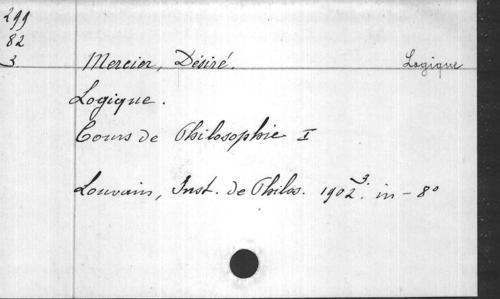 299
82
3.
Mercier, Désiré. Logique
Logique.
Cours de Philosophie I
Louvain, Inst. de Philos. 1902³. in-8°